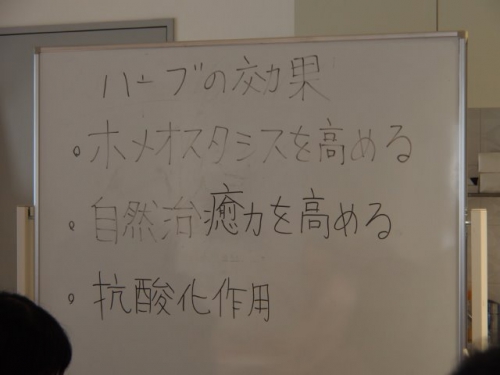 ハーブの効果
。ホメオスタシスを高める
。自然治癒力を高める
。抗酸化作用